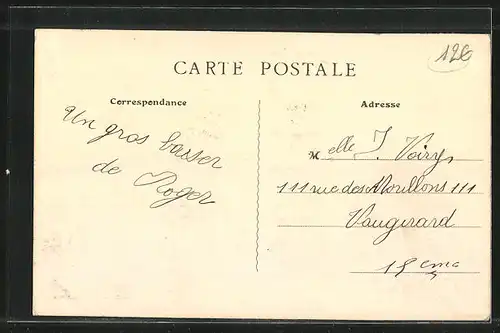 120
CARTE POSTALE
Correspondance
Un gros baiser
de Roger
Adresse
Melle J. Voiry
111 rue des Morillons 111
Vaugirard
15 eme